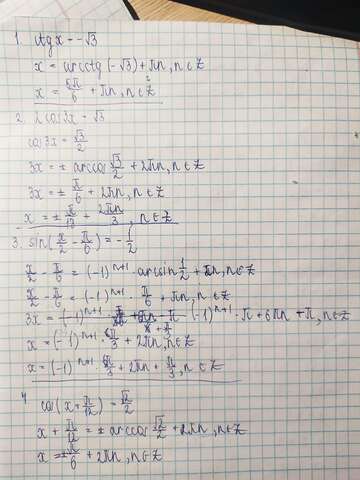 1. ctg x = -√3
x = arcctg(-√3) + πn, n ∈ Z
x = 5π/6 + πn, n ∈ Z
2. 2 cos 3x = √3
cos 3x = √3/2
3x = ± arccos √3/2 + 2πn, n ∈ Z
3x = ± π/6 + 2πn, n ∈ Z
x = ± π/18 + 2πn/3, n ∈ Z
3. sin(x/2 - π/6) = -1/2
x/2 - π/6 = (-1)^(n+1) · arcsin 1/2 + πn, n ∈ Z
x/2 - π/6 = (-1)^(n+1) · π/6 + πn, n ∈ Z
3x = (-1)^(n+1) · π + 6πn + π, n ∈ Z
x = (-1)^(n+1) · π/3 + 2πn, n ∈ Z
x = (-1)^(n+1) · π/3 + 2πn + π/3, n ∈ Z
4
cos(x + π/12) = √2/2
x + π/12 = ± arccos √2/2 + 2πn, n ∈ Z
x = ± π/6 + 2πn, n ∈ Z